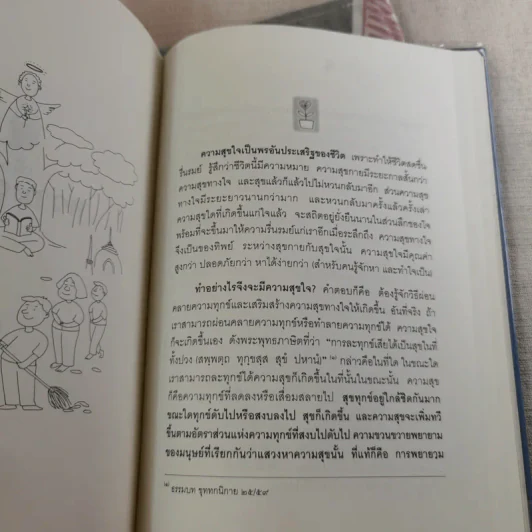 ความสุขใจเป็นพรอันประเสริฐของชีวิต เพราะทำให้ชีวิตสดชื่น
รื่นรมย์ รู้สึกว่าชีวิตนี้มีความหมาย ความสุขกายมีระยะกาลสั้นกว่า
ความสุขทางใจ และสุขแล้วก็แล้วไปไม่หวนกลับมาอีก ส่วนความสุข
ทางใจมีระยะยาวนานกว่ามาก และหวนกลับมาครั้งแล้วครั้งเล่า
ความสุขใดที่เกิดขึ้นแก่ใจแล้ว จะสถิตอยู่ยั่งยืนนานในส่วนลึกของใจ
พร้อมที่จะขึ้นมาให้ความรื่นรมย์แก่เราอีกเมื่อระลึกถึง ความสุขทางใจ
จึงเป็นของทิพย์ ระหว่างสุขกายกับสุขใจนั้น ความสุขใจมีคุณค่า
สูงกว่า ปลอดภัยกว่า หาได้ง่ายกว่า (สำหรับคนรู้จักหา และทำใจเป็น)
ทำอย่างไรจึงจะมีความสุขใจ? คำตอบก็คือ ต้องรู้จักวิธีผ่อน
คลายความทุกข์และเสริมสร้างความสุขทางใจให้เกิดขึ้น อันที่จริง ถ้า
เราสามารถผ่อนคลายความทุกข์หรือทำลายความทุกข์ได้ ความสุขใจ
ก็จะเกิดขึ้นเอง ดังพระพุทธภาษิตที่ว่า "การละทุกข์เสียได้เป็นสุขในที่
ทั้งปวง (สพฺพตฺถ ทุกฺขสฺส สุขํ ปหานํ)" กล่าวคือในที่ใด ในขณะใด
เราสามารถละทุกข์ได้ความสุขก็เกิดขึ้นในที่นั้นในขณะนั้น ความสุข
ก็คือความทุกข์ที่ลดลงหรือเสื่อมสลายไป สุขทุกข์อยู่ใกล้ชิดกันมาก
ขณะใดทุกข์ดับไปหรือสงบลงไป สุขก็เกิดขึ้น และความสุขจะเพิ่มทวี
ขึ้นตามอัตราส่วนแห่งความทุกข์ที่สงบไปดับไป ความขวนขวายพยายาม
ของมนุษย์ที่เรียกกันว่าแสวงหาความสุขนั้น ที่แท้ก็คือ การพยายาม
ธรรมบท ขุททกนิกาย ๒๕/๕๙